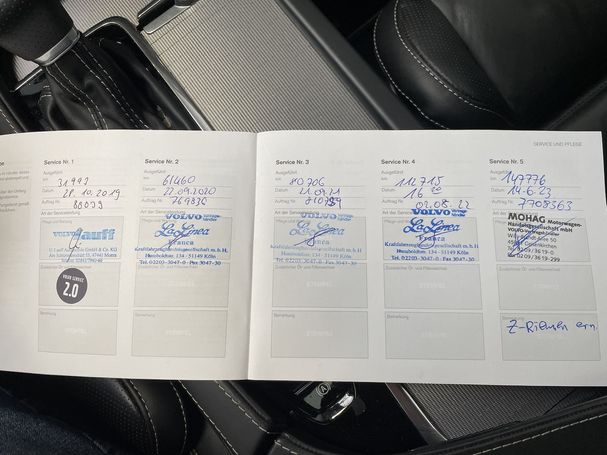 SERVICE UND PFLEGE
Service Nr. 1
Ausgeführt
km 31993
Datum 28.10.2019
Auftrag Nr. 88039
Art der Serviceleistung
VOLVO Lauff
YOUR SERVICE
2.0
Bemerkung
Service Nr. 2
Ausgeführt
km 61460
Datum 22.09.2020
Auftrag Nr. 769836
Art der Serviceleistung
VOLVO
La Linea
Franca
Kraftfahrzeughandelsgesellschaft m.b.H.
Humboldtstr. 134 - 51149 Köln
Tel. 02203-3047-0 · Fax 3047-30
Zusätzlicher Öl- und Filterwechsel
STEMPEL
Bemerkung
STEMPEL
Service Nr. 3
Ausgeführt
km 80706
Datum 21.09.21
Auftrag Nr.
Art der Serviceleistung
VOLVO
La Linea
Franca
Kraftfahrzeughandelsgesellschaft m.b.H.
Humboldtstr. 134 - 51149 Köln
Tel. 02203-3047-0 · Fax 3047-30
Zusätzlicher Öl- und Filterwechsel
STEMPEL
Bemerkung
STEMPEL
Service Nr. 4
Ausgeführt
km 112715
Datum
Auftrag Nr. 02.08.22
Art der Serviceleistung
VOLVO
La Linea
Franca
Kraftfahrzeughandelsgesellschaft m.b.H.
Humboldtstr. 134 - 51149 Köln
Tel. 02203-3047-0 · Fax 3047-30
Zusätzlicher Öl- und Filterwechsel
STEMPEL
Bemerkung
STEMPEL
Service Nr. 5
Ausgeführt
km 147776
Datum 14.6.23
Auftrag Nr. 7708563
MOHAG Motorwagen-
Handelsgesellschaft mbH
Gelsenkirchen
0209/3619-0
0209/3619-299
Zusätzlicher Öl- und Filterwechsel
STEMPEL
Bemerkung
Z-Riemen ern.